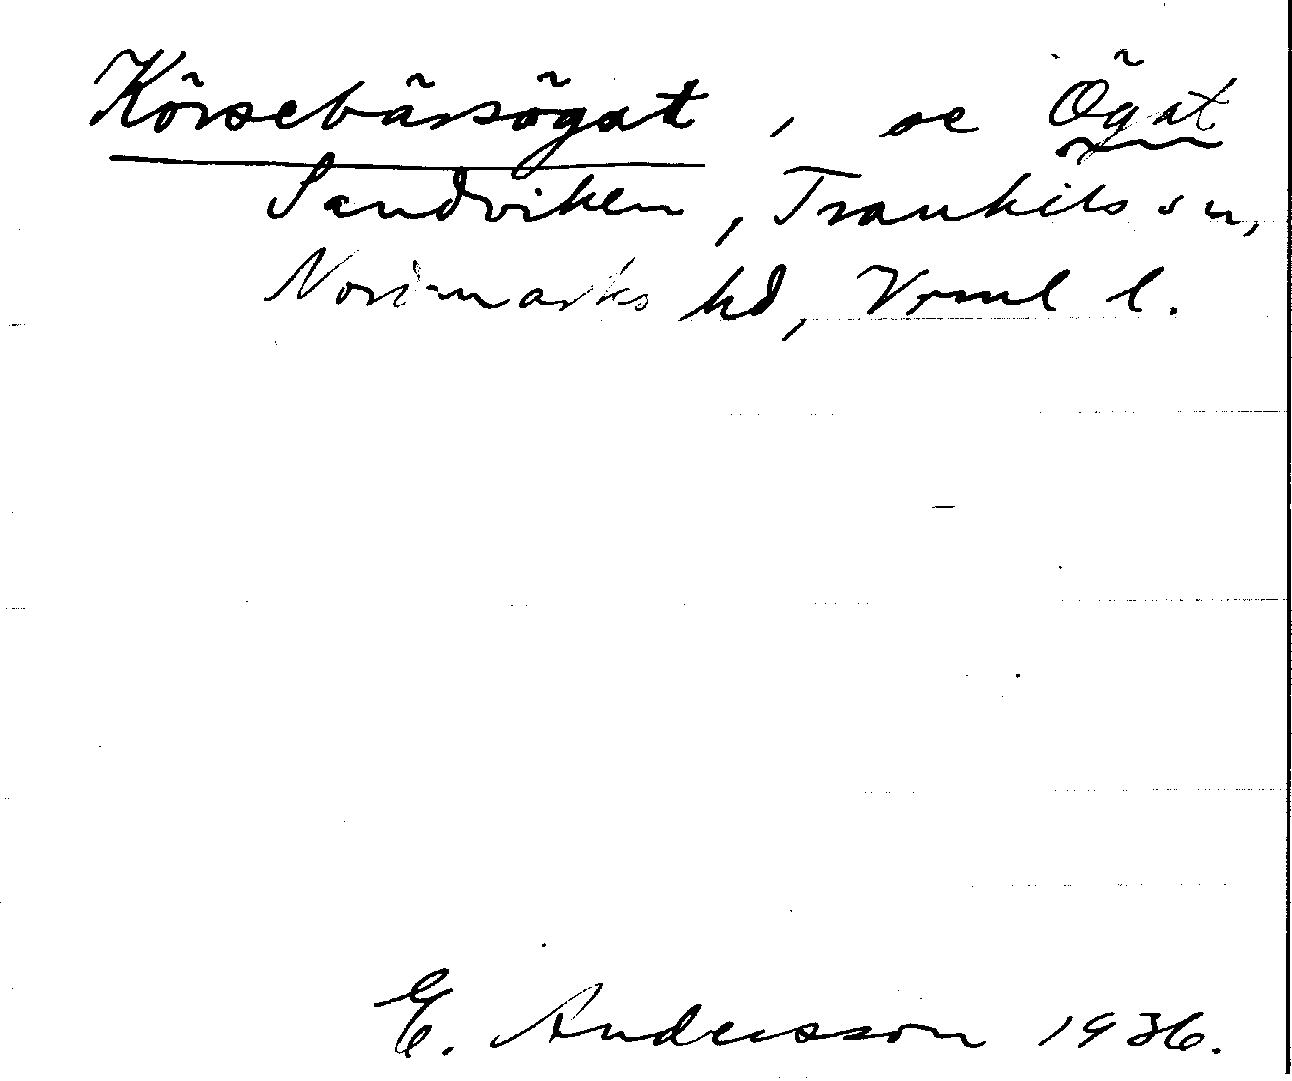 Körsebärsögat, se Ögat
Sandviken, Trankils sn,
Nordmarks hd, Vrml l.
E. Andersson 1936.